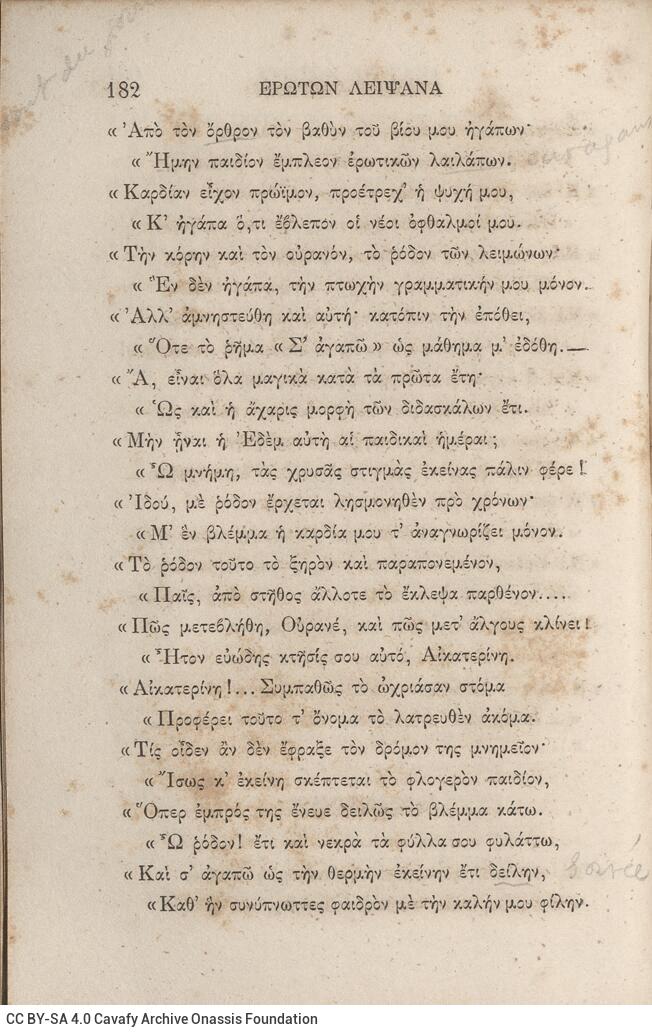 182 ΕΡΩΤΩΝ ΛΕΙΨΑΝΑ
« Ἀπὸ τὸν ὄρθρον τὸν βαθὺν τοῦ βίου μου ἠγάπων·
« Ἤμην παιδίον ἔμπλεον ἐρωτικῶν λαιλάπων.
« Καρδίαν εἶχον πρώϊμον, προέτρεχ' ἡ ψυχή μου,
« Κ' ἠγάπα ὅ,τι ἔβλεπον οἱ νέοι ὀφθαλμοί μου.
« Τὴν κόρην καὶ τὸν οὐρανόν, τὸ ῥόδον τῶν λειμώνων·
« Ἓν δὲν ἠγάπα, τὴν πτωχὴν γραμματικήν μου μόνον.
« Ἀλλ' ἀμνηστεύθη καὶ αὐτή· κατόπιν τὴν ἐπόθει,
« Ὅτε τὸ ῥῆμα « Σ' ἀγαπῶ » ὡς μάθημα μ' ἐδόθη.—
« Ἄ, εἶναι ὅλα μαγικὰ κατὰ τὰ πρῶτα ἔτη·
« Ὡς καὶ ἡ ἄχαρις μορφὴ τῶν διδασκάλων ἔτι.
« Μὴν ᾖναι ἡ Ἐδὲμ αὐτὴ αἱ παιδικαὶ ἡμέραι;
« Ὦ μνήμη, τὰς χρυσᾶς στιγμὰς ἐκείνας πάλιν φέρε!
« Ἰδού, μὲ ῥόδον ἔρχεται λησμονηθὲν πρὸ χρόνων·
« Μ' ἓν βλέμμα ἡ καρδία μου τ' ἀναγνωρίζει μόνον.
« Τὸ ῥόδον τοῦτο τὸ ξηρὸν καὶ παραπονεμένον,
« Παῖς, ἀπὸ στῆθος ἄλλοτε τὸ ἔκλεψα παρθένον....
« Πῶς μετεβλήθη, Οὐρανέ, καὶ πῶς μετ' ἄλγους κλίνει!
« Ἦτον εὐώδης κτῆσίς σου αὐτό, Αἰκατερίνη.
« Αἰκατερίνη!... Συμπαθῶς τὸ ὠχριάσαν στόμα
« Προφέρει τοῦτο τ' ὄνομα τὸ λατρευθὲν ἀκόμα.
« Τίς οἶδεν ἂν δὲν ἔφραξε τὸν δρόμον της μνημεῖον·
« Ἴσως κ' ἐκείνη σκέπτεται τὸ φλογερὸν παιδίον,
« Ὅπερ ἐμπρός της ἔνευε δειλῶς τὸ βλέμμα κάτω.
« Ὦ ῥόδον! ἔτι καὶ νεκρὰ τὰ φύλλα σου φυλάττω,
« Καὶ σ' ἀγαπῶ ὡς τὴν θερμὴν ἐκείνην ἔτι δείλην,
« Καθ' ἣν συνύπνωττες φαιδρὸν μὲ τὴν καλήν μου φίλην.
CC BY-SA 4.0 Cavafy Archive Onassis Foundation